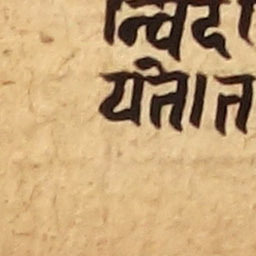 न्विदा
यते।त